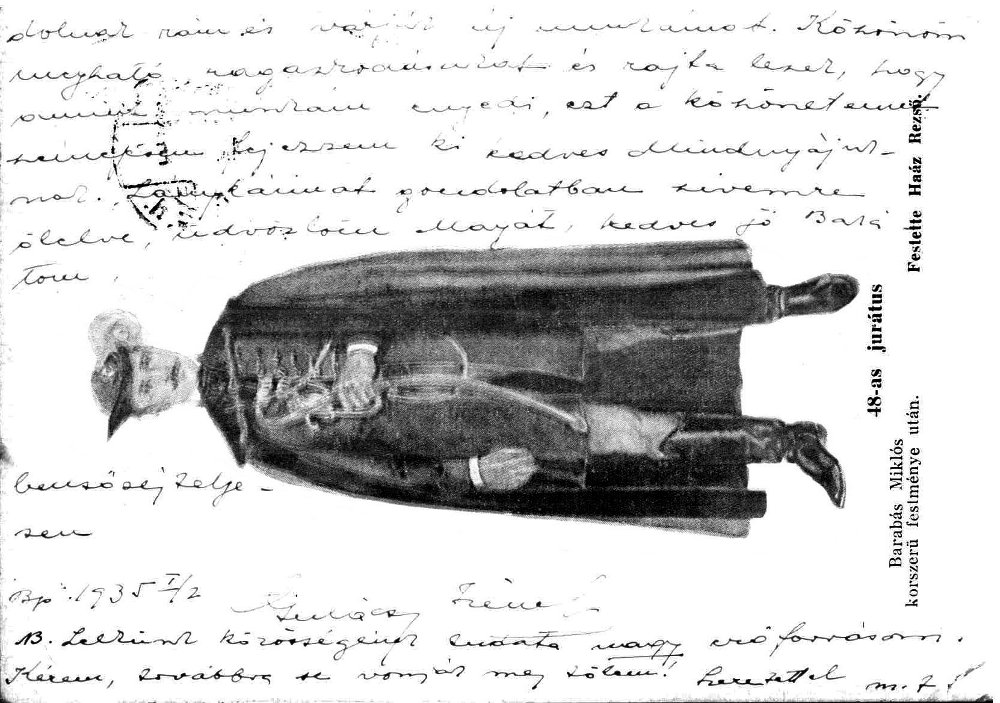 dolnak rám és várják új munkámat. Köszönöm
megható, ragaszkodásukat és rajta leszek, hogy
munkám engedi, ezt a köszönetemet
fejezzem ki kedves Mindnyájuk-
nak. gondolatban szivemre
ölelve, üdvözlöm Magát, kedves jó Bará
tom,
bensőség telje-
sen
Bp. 1935 I/2
Gulácsy Irén
NB. Lelkünk közösségének tudata nagy erőforrásom.
Kérem, továbbra se vonják meg tőlem! Szeretettel
48-as jurátus
Barabás Miklós
korszerű festménye után.
Festette Haáz Rezső.